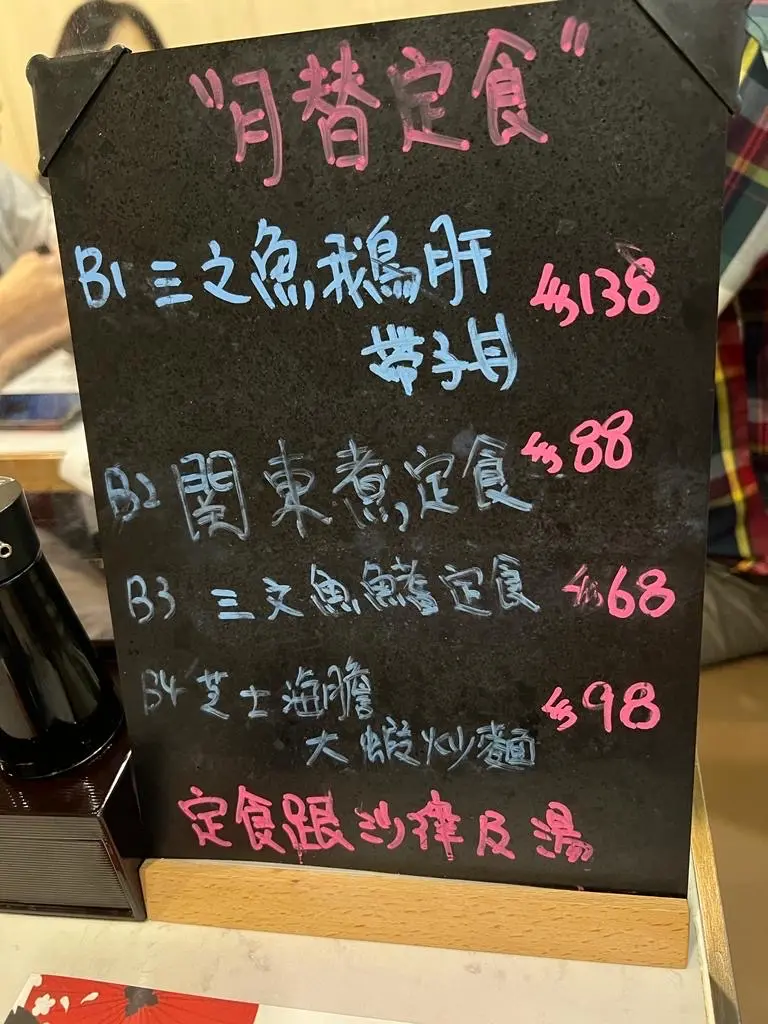 "月替定食"
B1 三文魚鵝肝 $138
帶子丼
B2 関東煮定食 $88
B3 三文魚鰭定食 $68
B4 芝士海膽 $98
大蝦炒麵
定食跟沙律及湯